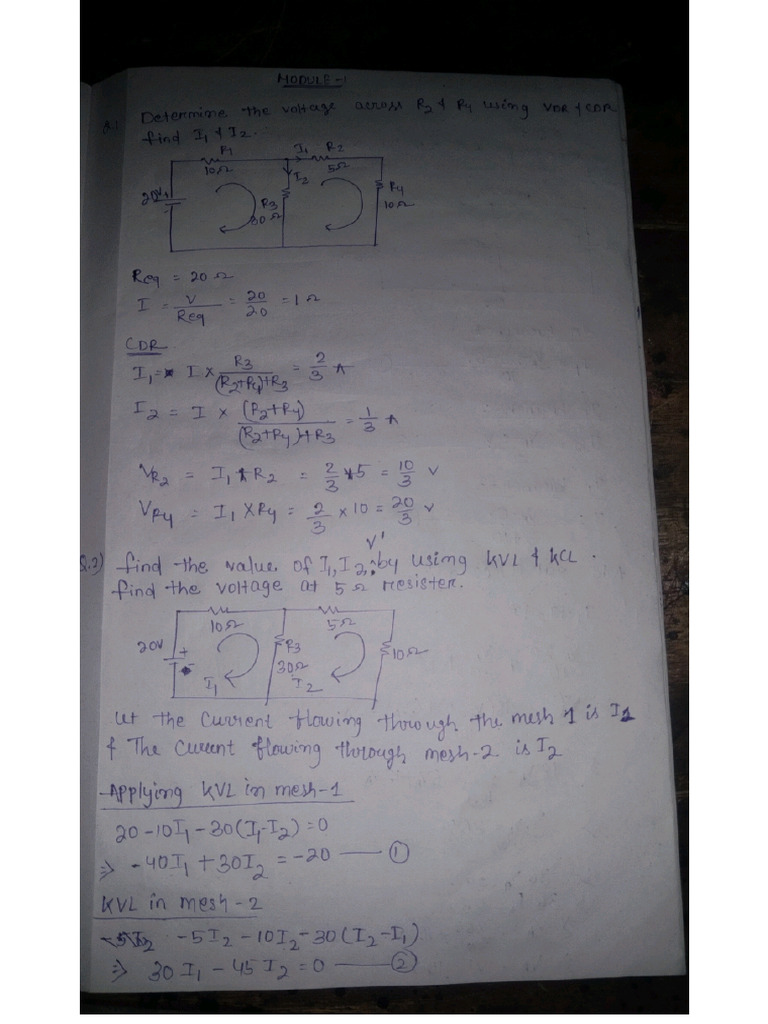 MODULE-1
Q.1 Determine the voltage across R2 & R4 using VDR & CDR
find I1 & I2.
R1 I1 R2
10Ω I2 5Ω
20V + R3 R4
- 30Ω 10Ω
Req = 20Ω
I = V/Req = 20/20 = 1Ω
CDR
I1 = I × R3/((R2+R4)+R3) = 2/3 A
I2 = I × (R2+R4)/((R2+R4)+R3) = 1/3 A
VR2 = I1 * R2 = 2/3 * 5 = 10/3 V
VR4 = I1 × R4 = 2/3 × 10 = 20/3 V
V'
Q.2) find the value of I1, I2, by using KVL & KCL.
find the voltage at 5Ω resister.
10Ω 5Ω
20V + R3 10Ω
- 30Ω
I1 I2
Let the current flowing through the mesh 1 is I1
& The Current flowing through mesh-2 is I2
Applying KVL in mesh-1
20-10I1-30(I1-I2)=0
⇒ -40I1+30I2=-20 — ①
KVL in mesh-2
-5I2 -5I2-10I2-30(I2-I1)
⇒ 30I1-45I2=0 — ②